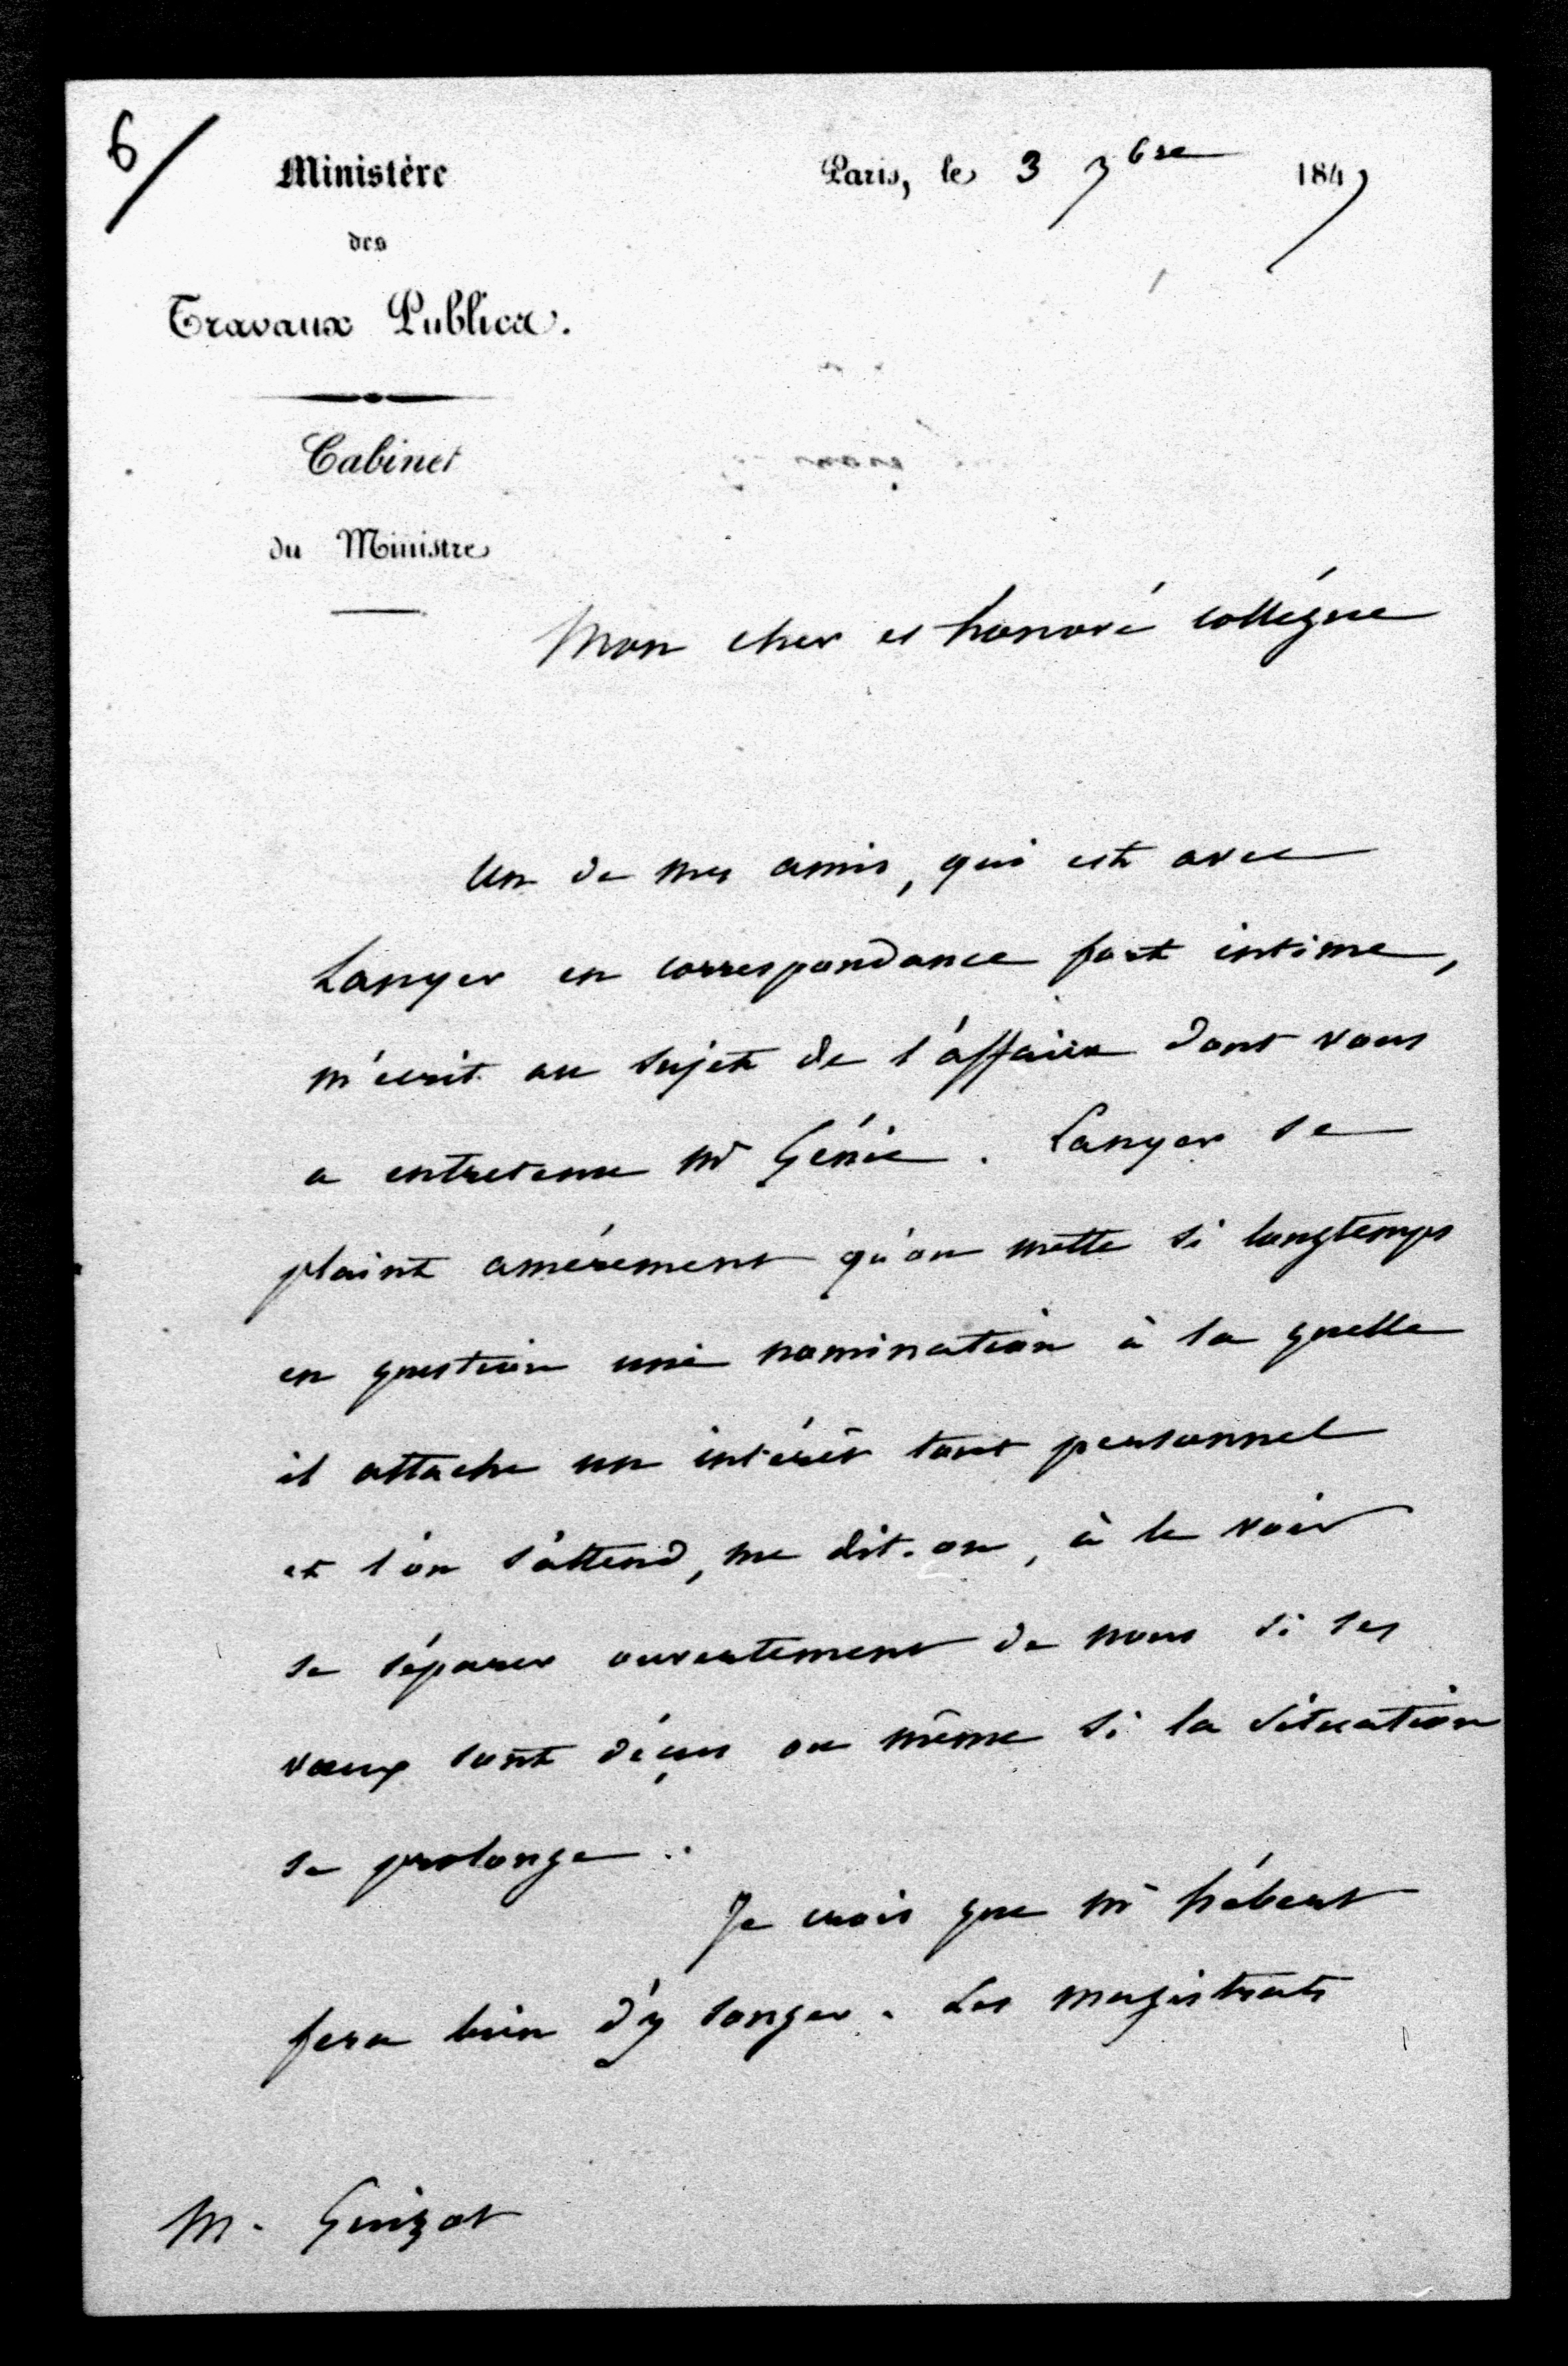 6/
Ministère
des
Travaux Publics.
Cabinet
du Ministre
Paris, le 3 7bre 1847
Mon cher et honoré collègue
Un de mes amis, qui est avec
Lanyer en correspondance fort intime,
m'écrit au sujet de l'affaire dont vous
a entretenu Mr Génie. Lanyer se
plaint amérement qu'on mette si longtemps
en question une nomination à la quelle
il attache un intérêt tout personnel
et l'on s'attend, me dit-on, à le voir
se séparer ouvertement de nous si ses
vœux sont déçus ou même si la situation
se prolonge.
Je crois que Mr hébert
fera bien d'y songer. Les magistrats
M. Guizot